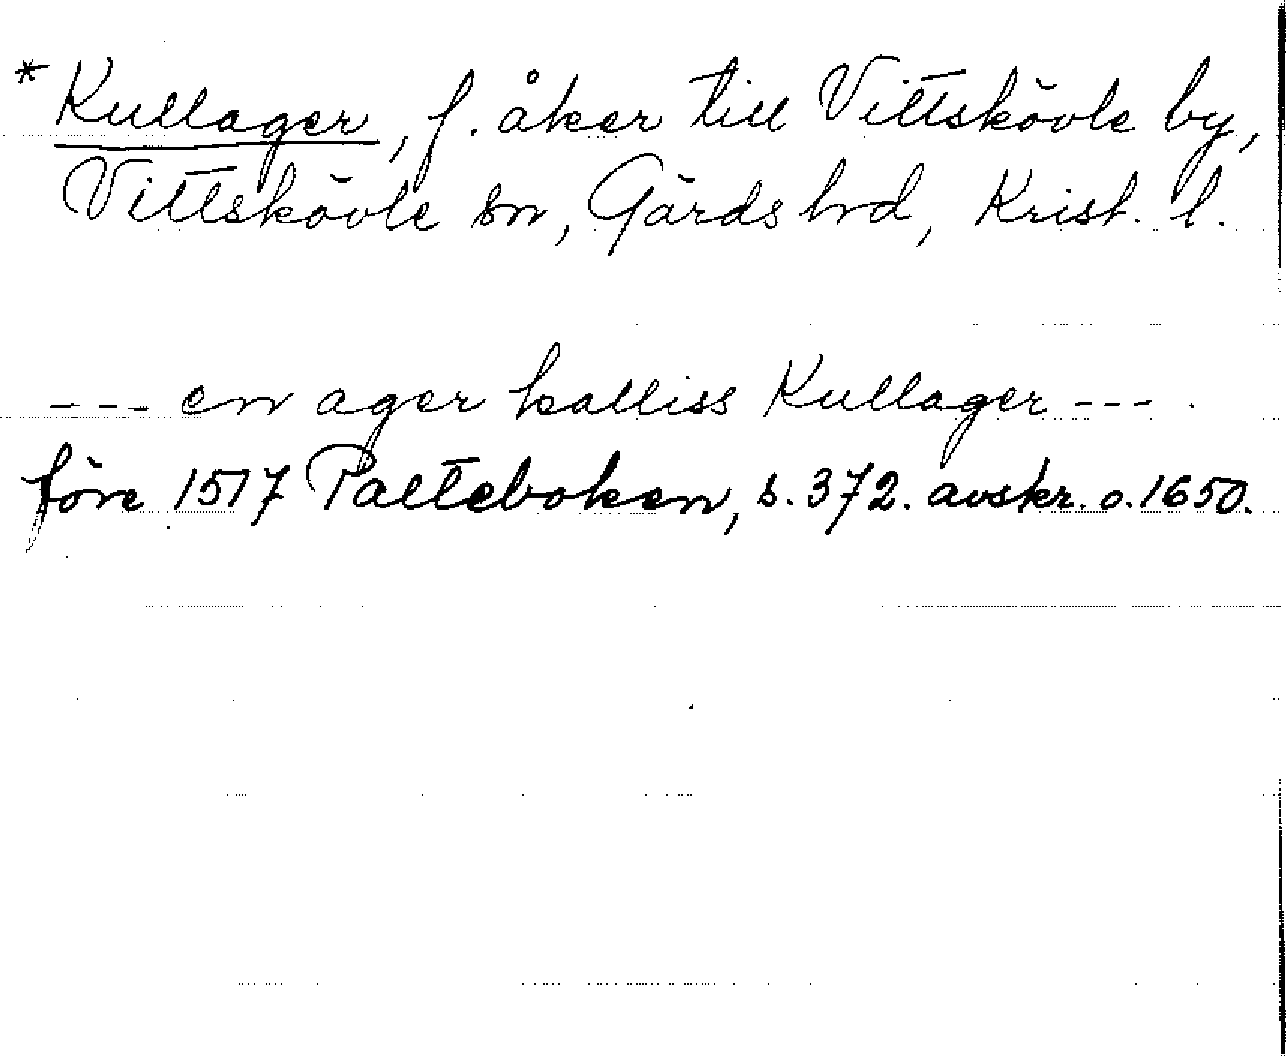 *Kullager, f. åker till Vittskövle by,
Vittskövle sn, Gärds hrd, Krist. l.
--- en ager kalliss Kullager ---
före 1517 Palteboken, s. 372. avskr. o. 1650.